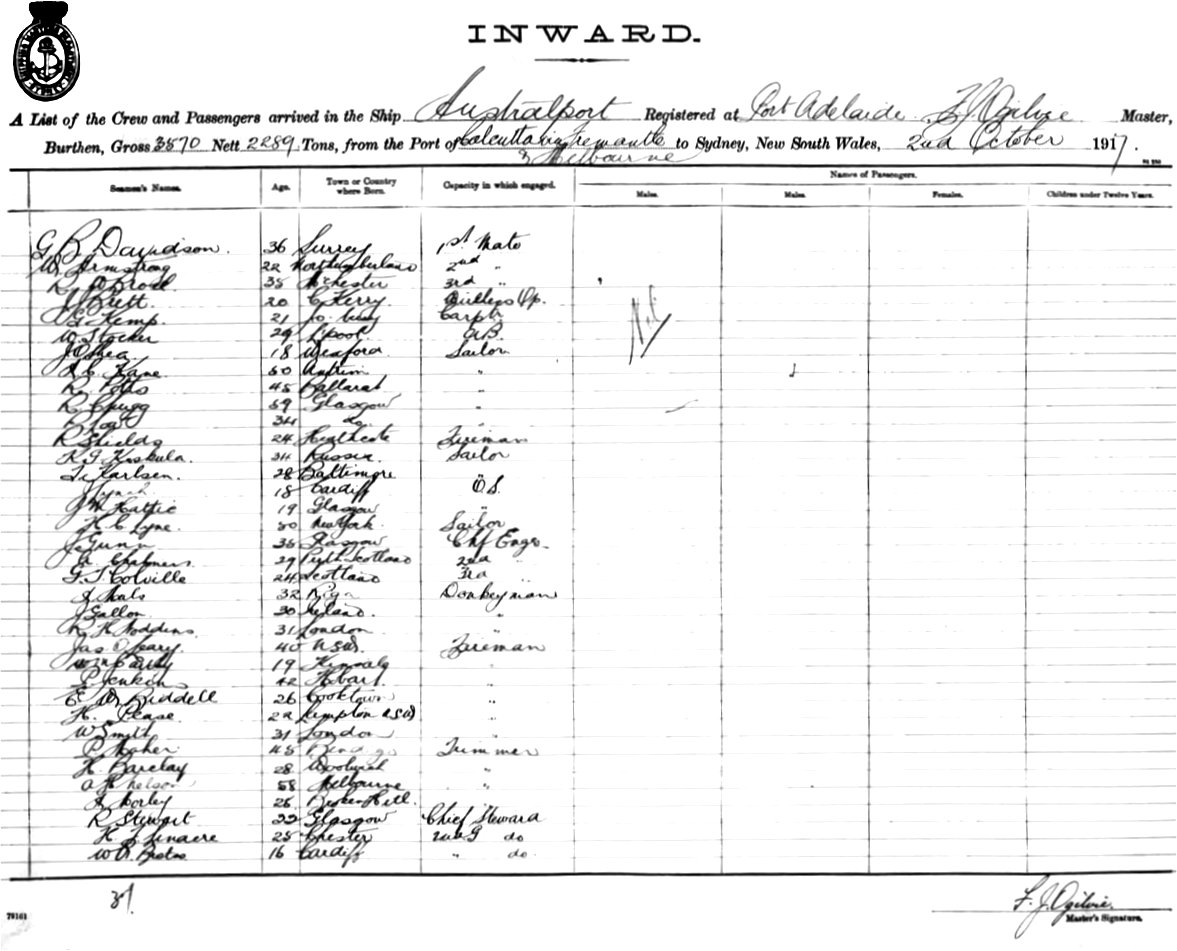 INWARD.
A List of the Crew and Passengers arrived in the Ship Australport Registered at Port Adelaide F J Ogilvie Master,
Burthen, Gross 3570 Nett 2289 Tons, from the Port of Calcutta via Fremantle to Sydney, New South Wales, 2nd October 1917.
& Melbourne
Names of Passengers.
Seamen's Names. Age. Town or Country where Born. Capacity in which engaged. Males. Males. Females. Children under Twelve Years.
G B Davidson. 36 Surrey 1st Mate
W. Armstrong 22 Northumberland 2nd "
35 3rd "
J Brett. 20 C Kerry. Wireless Op.
Kemp. 21 Carptr
Nil
W Stocker 29 L'pool A.B.
J O'Shea 18 Wexford Sailor
Kane 50 Antrim "
R. Potts 45 Ballarat "
R. Chugg 59 Glasgow "
34 do "
R Shields 24 Heathcote Fireman
K. J. Koskula. 34 Russia. Sailor
Karlsen. 28 Baltimore "
J Lynch 18 Cardiff O.S.
J McHattie 19 Glasgow "
H C Lyne. 50 New York. Sailor
J Gunn 38 Glasgow Chf Engr
A Chalmers 29 Perth Scotland 2nd "
G. T. Colville 24 Scotland 3rd "
32 Riga Donkeyman
J Gallon 30 Ireland. "
R H Noddins 31 London "
Jas O'Leary. 40 N.S.W. Fireman
19 "
P Jenkins 42 Hobart "
E W Riddell 26 Cooktown "
H. Pease. 22 N.S.W "
W Smith 31 London "
P. Maher 45 Bendigo Trimmer
H. Barclay 28 Woolwich "
A H Nelson 58 Melbourne "
Morley 25 Broken Hill.
R Stewart 22 Glasgow Chief Steward
H. J. Linacre 25 Chester 2nd do
16 Cardiff " do.
37
F. J. Ogilvie.
79161
Master's Signature.